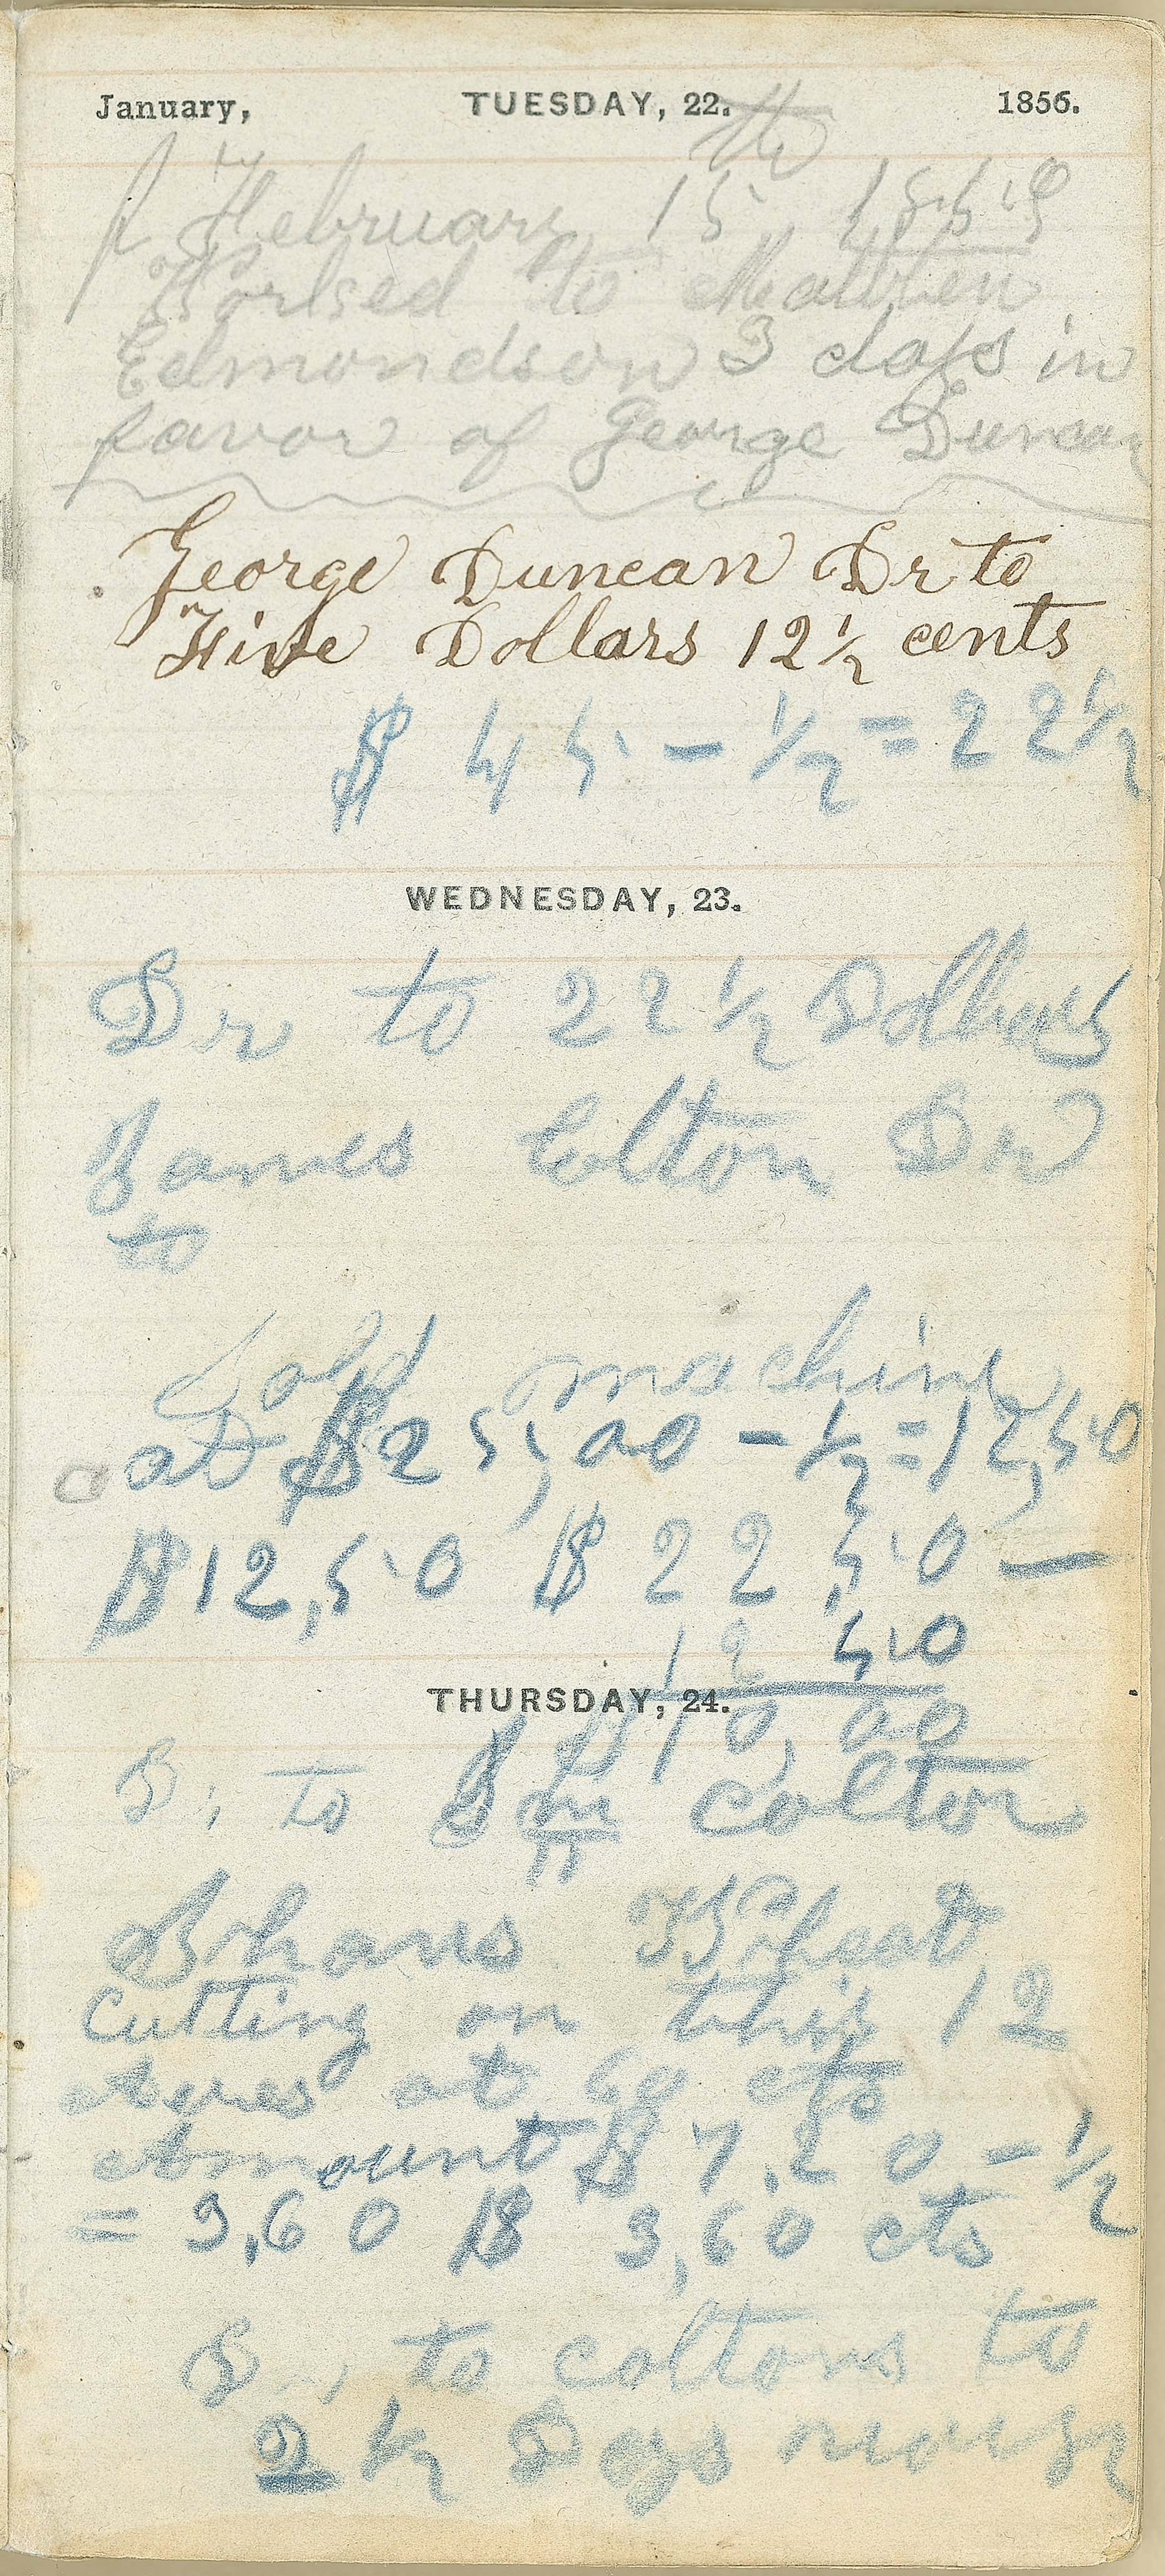 January, TUESDAY, 22. 1856.
th
February 15 1859
Worked to
Edmondson 3 days in
favor of George Duncan
George Duncan Dr to
Five Dollars 12½ cents
$ 45 - ½ = 22½
WEDNESDAY, 23.
Dr to 22½ Dollars
James Colton Dr
to
Sold machine
at $25,00 - ½ = 12,50
$12,50 $22,50 -
12 50
THURSDAY, 24.
10,00
to Colton
Wheat
Cutting on this 12
acres at 60 cts
Amount $7.20 - ½
= 3,60 $ 3,60 cts
to coltons to
2½ Days